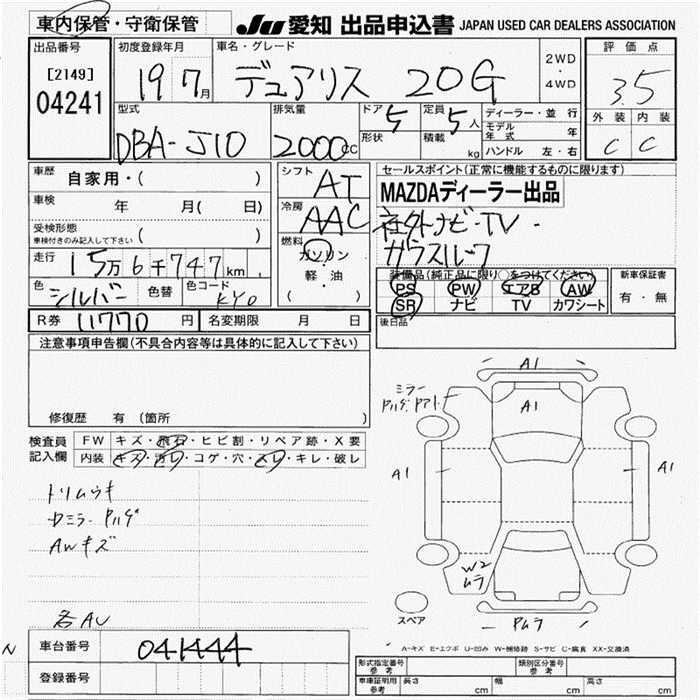 車内保管・守衛保管
JU 愛知 出品申込書 JAPAN USED CAR DEALERS ASSOCIATION
出品番号
[2149]
04241
初度登録年月
19 7月
車名・グレード
デュアリス 20G
2WD
・
4WD
評価点
3.5
外装 内装
C C
型式
DBA-J10
排気量
2000cc
ドア 5
形状
定員 5人
積載 kg
ディーラー・並行
モデル年式 年
ハンドル 左・右
車歴 自家用・( )
車検 年 月( 日)
受検形態
車検付きのみ記入して下さい ( )
走行 15万6千747km
色 シルバー 色替 色コード KY0
R券 11770 円 名変期限 月 日
シフト AT
冷房 AAC
燃料
ガソリン
・
軽・油
( )
セールスポイント(正常に機能するものに限ります)
MAZDAディーラー出品
社外ナビ・TV・
ガラスルーフ
装備品(純正品に限り○をつけてください)
PS PW エアB AW
SR ナビ TV カワシート
新車保証書
有・無
後日品
注意事項申告欄(不具合内容等は具体的に記入して下さい)
修復歴 有(箇所 )
検査員記入欄
FW キズ・飛石・ヒビ割・リペア跡・X要
内装 キズ・汚レ・コゲ・穴・スレ・キレ・破レ
トリムウキ
ミラー ハゲ
AWキズ
各AU
車台番号 041444
登録番号
N
A1
ミラー
A1
A1
A1
W2
ムラ
スペア
Pムラ
A-キズ E-エクボ U-凹み W-補修跡 S-サビ C-腐食 XX-交換済
型式指定番号
参考
類別区分番号
参考
車庫証明用
参考
長さ cm 幅 cm 高さ cm